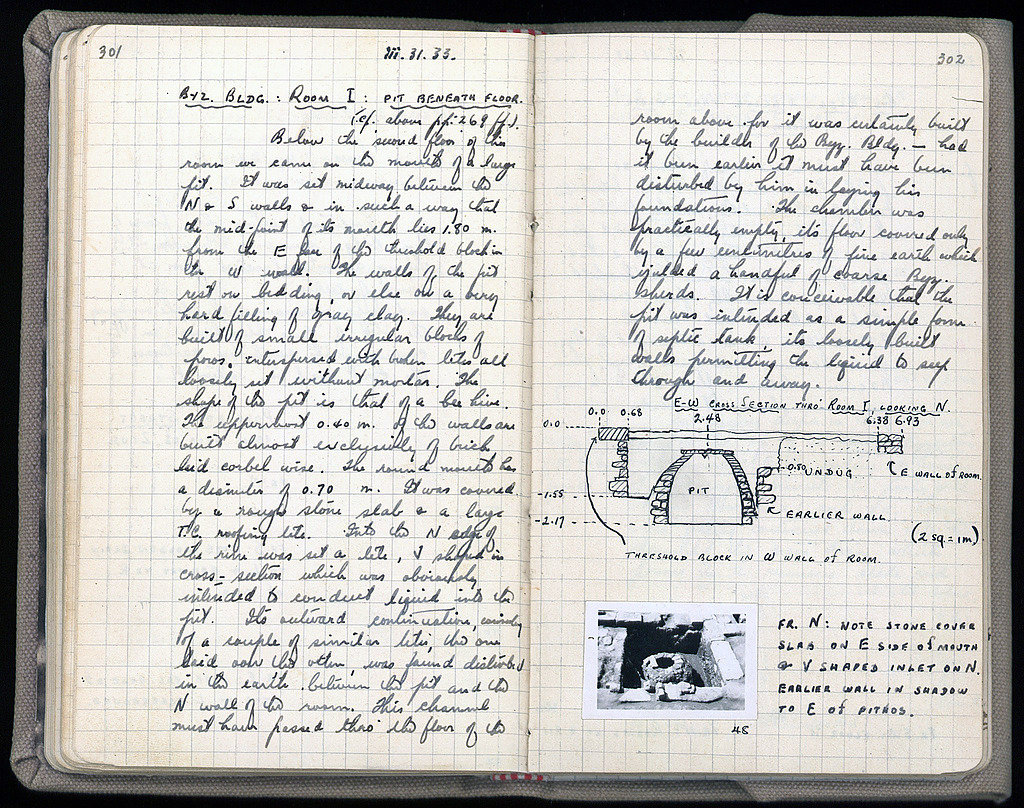 301
III.31.33.
BYZ. BLDG. : ROOM I : PIT BENEATH FLOOR.
(cf. above pp. 269 ff.).
Below the second floor of this
room we came on the mouth of a large
pit. It was set midway between the
N & S walls & in such a way that
the mid-point of its mouth lies 1.80 m.
from the E face of the threshold block in
the W wall. The walls of the pit
rest on bedding, or else on a very
hard filling of gray clay. They are
built of small irregular blocks of
poros, interspersed with broken tiles all
loosely set without mortar. The
shape of the pit is that of a bee hive.
The uppermost 0.40 m. of the walls are
built almost exclusively of brick
laid corbel wise. The round mouth has
a diameter of 0.70 m. It was covered
by a rough stone slab & a large
T.C. roofing tile. Into the N edge of
the rim was set a tile, V shaped in
cross-section which was obviously
intended to conduct liquid into the
pit. Its outward continuation,
of a couple of similar tiles, the one
laid over the other, was found disturbed
in the earth between the pit and the
N wall of the room. This channel
must have passed thro' the floor of the
302
room above for it was certainly built
by the builder of the Byz. Bldg. — had
it been earlier it must have been
disturbed by him in laying his
foundations. The chamber was
practically empty, its floor covered only
by a few centimetres of fine earth which
yielded a handful of coarse Byz.
sherds. It is conceivable that the
pit was intended as a simple form
of septic tank, its loosely built
walls permitting the liquid to seep
through and away.
E-W CROSS SECTION THRO' ROOM I, LOOKING N.
0.0 0.68 2.48 6.38 6.93
0.0
-0.80 UNDUG
E WALL OF ROOM.
PIT
-1.55
EARLIER WALL
-2.17
(2 SQ. = 1m)
THRESHOLD BLOCK IN W WALL OF ROOM.
FR. N: NOTE STONE COVER
SLAB ON E SIDE OF MOUTH
& V SHAPED INLET ON N.
EARLIER WALL IN SHADOW
TO E OF PITHOS.
48